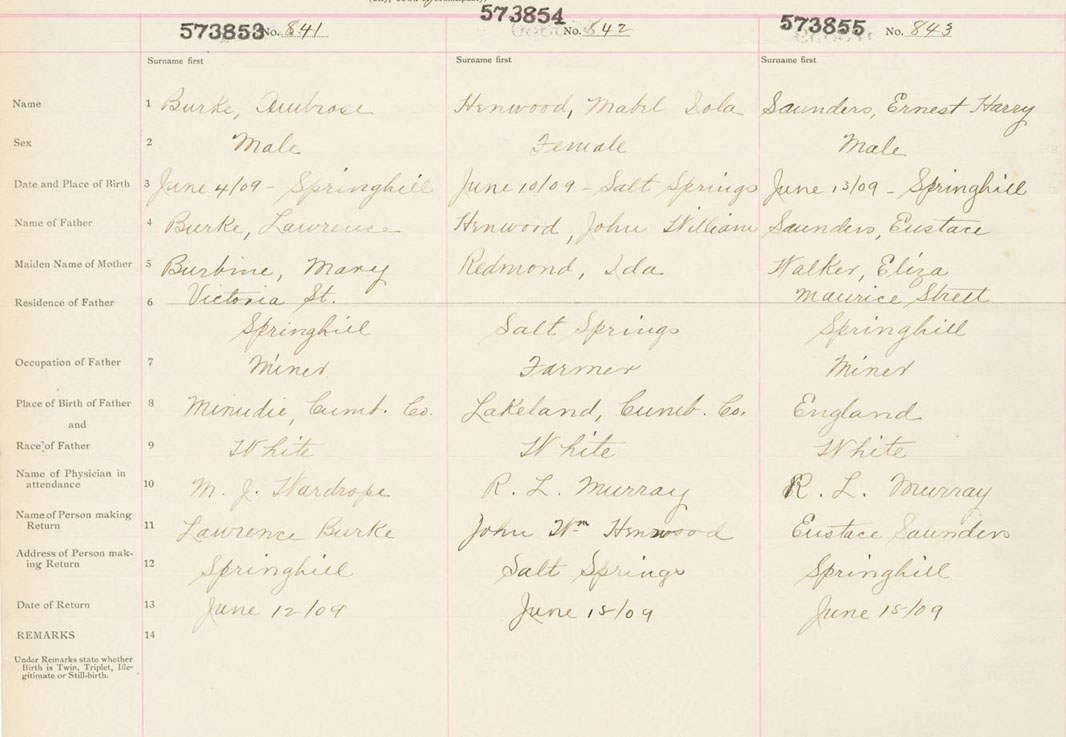 573853 No. 841
573854 No. 842
573855 No. 843
Surname first Surname first Surname first
Name 1 Burke, Ambrose Henwood, Mabel Iola Saunders, Ernest Harry
Sex 2 Male Female Male
Date and Place of Birth 3 June 4/09 - Springhill June 10/09 - Salt Springs June 13/09 - Springhill
Name of Father 4 Burke, Lawrence Henwood, John William Saunders, Eustace
Maiden Name of Mother 5 Burbine, Mary Redmond, Ida Walker, Eliza
Victoria St. Maurice Street
Residence of Father 6
Springhill Salt Springs Springhill
Occupation of Father 7 Miner Farmer Miner
Place of Birth of Father 8 Minudie, Cumb. Co. Lakeland, Cumb. Co. England
and
Race of Father 9 White White White
Name of Physician in
attendance 10 M. J. Wardrope R. L. Murray R. L. Murray
Name of Person making
Return 11 Lawrence Burke John Wm Henwood Eustace Saunders
Address of Person mak-
ing Return 12 Springhill Salt Springs Springhill
Date of Return 13 June 12/09 June 15/09 June 15/09
REMARKS 14
Under Remarks state whether
Birth is Twin, Triplet, Ille-
gitimate or Still-birth.